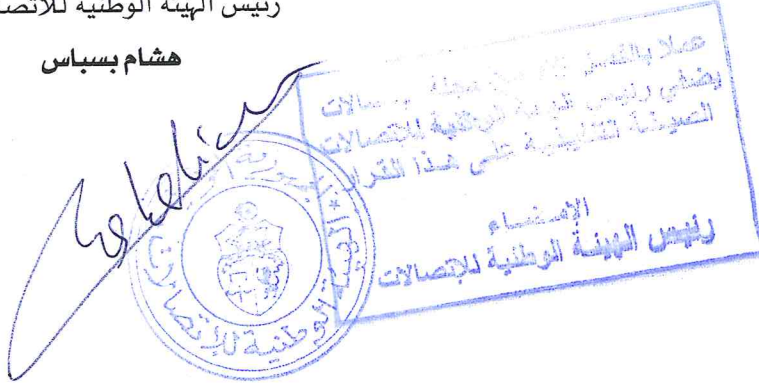 رئيس الهيئة الوطنية للاتصا
هشام بسباس
عملا بالفصل مجلة
يضفي رئيس الهيئة الوطنية للإتصالات
الصيغة التنفيذية على هذا القرار
الإمضاء
رئيس الهيئة الوطنية للإتصالات
الهيئة الوطنية للإتصالات